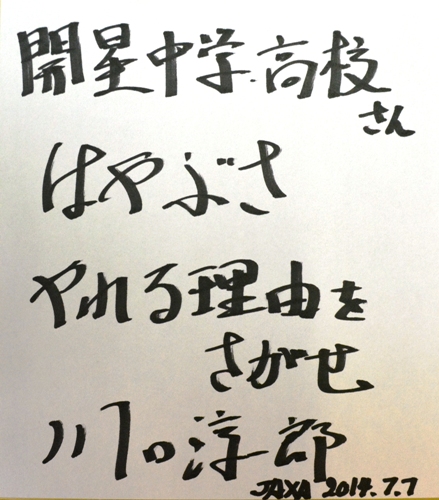 開星中学.高校
さん
はやぶさ
やれる理由を
さがせ
川口淳一郎
JAXA 2014.7.7